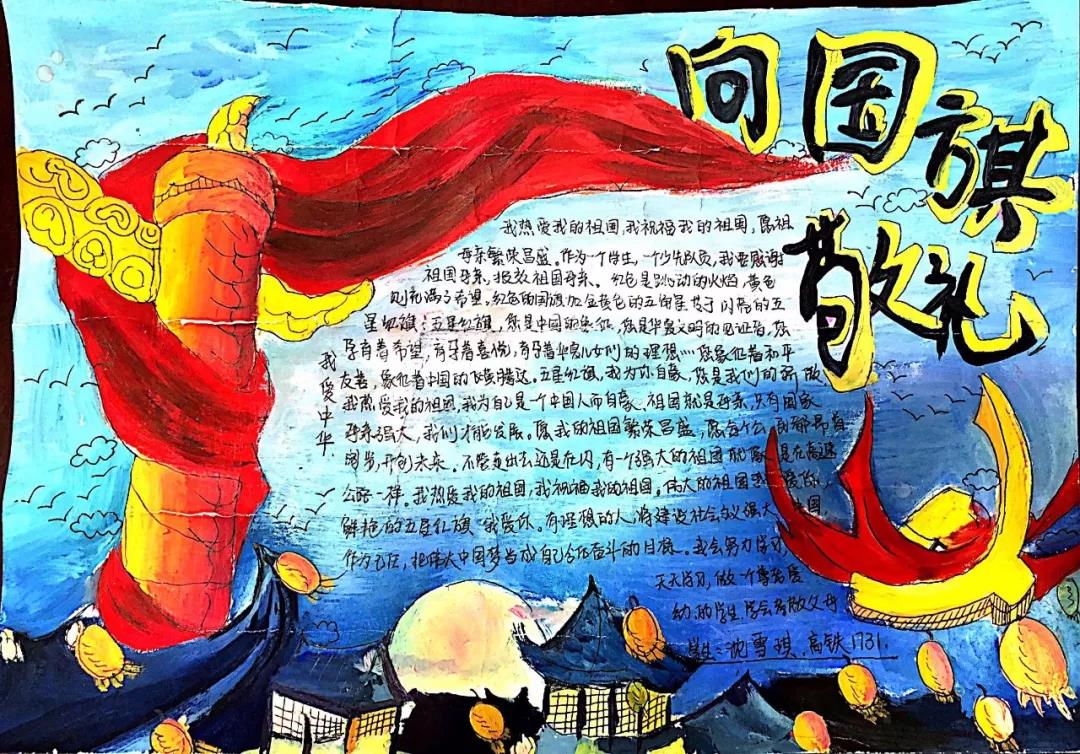 向国旗
敬礼
我爱中华
我热爱我的祖国,我祝福我的祖国,愿祖
母亲繁荣昌盛。作为一个学生,一个少先队员,我要感谢
祖国母亲,报效祖国母亲。红色是跳动的火焰,黄色
则充满了希望。红色的国旗加金黄色的五角星 闪亮的五
星红旗:五星红旗,您是中国的象征,您是华夏文明的见证者,您
孕育着希望,孕育着喜悦,孕育着华夏儿女们的理想……您象征着和平
友善,象征着中国的飞黄腾达。五星红旗,我为你自豪,您是我们的骄傲,
我热爱我的祖国,我为自己是一个中国人而自豪。祖国就是母亲,只有国家
母亲强大,我们才能发展。愿我的祖国繁荣昌盛,愿每个公
阔步,开创未来。不管走出去还是在内,有一个强大的祖国 在高速
公路一样。我热爱我的祖国,我祝福我的祖国。伟大的祖国我 爱你,
鲜艳的五星红旗 我爱你。有理想的人,将建设社会主义强大 国,
作为己任,把伟大中国梦当成自己 奋斗的目标。我会努力学习,
天天学习,做一个尊老爱
幼,的学生,学会孝敬父母
学生:沈雪琪,高铁1731.